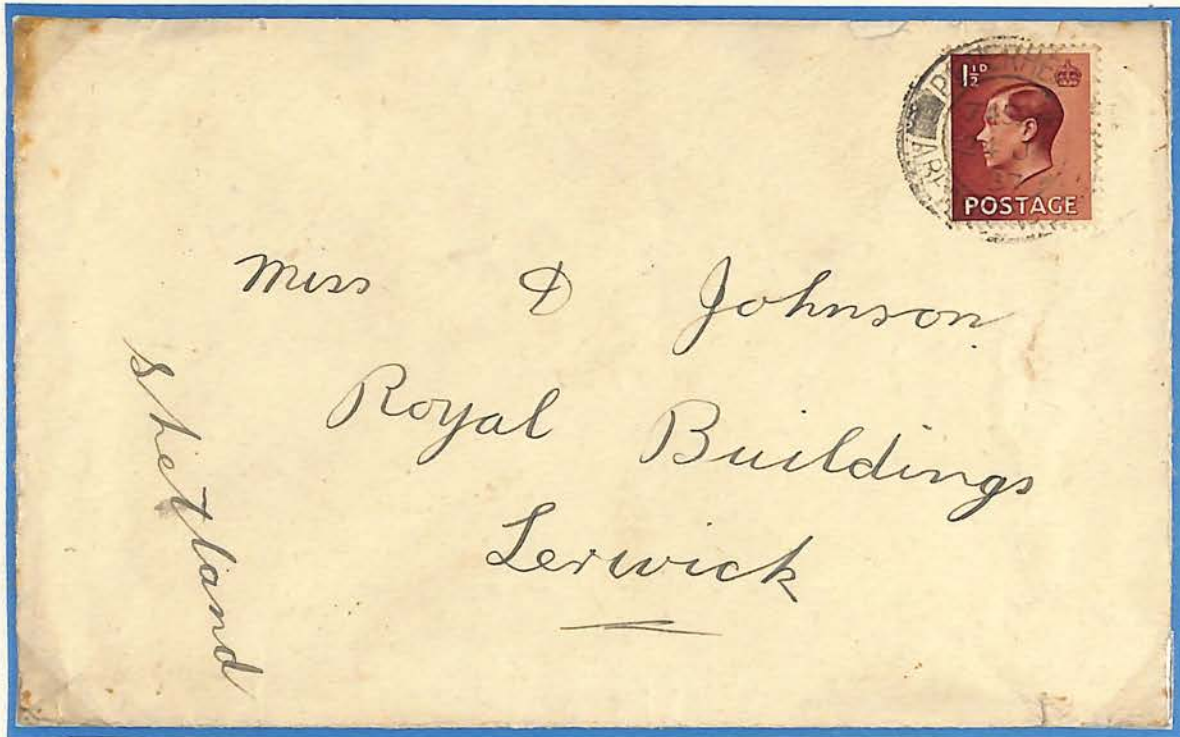 1½D
POSTAGE
Miss D Johnson
Royal Buildings
Lerwick
Shetland